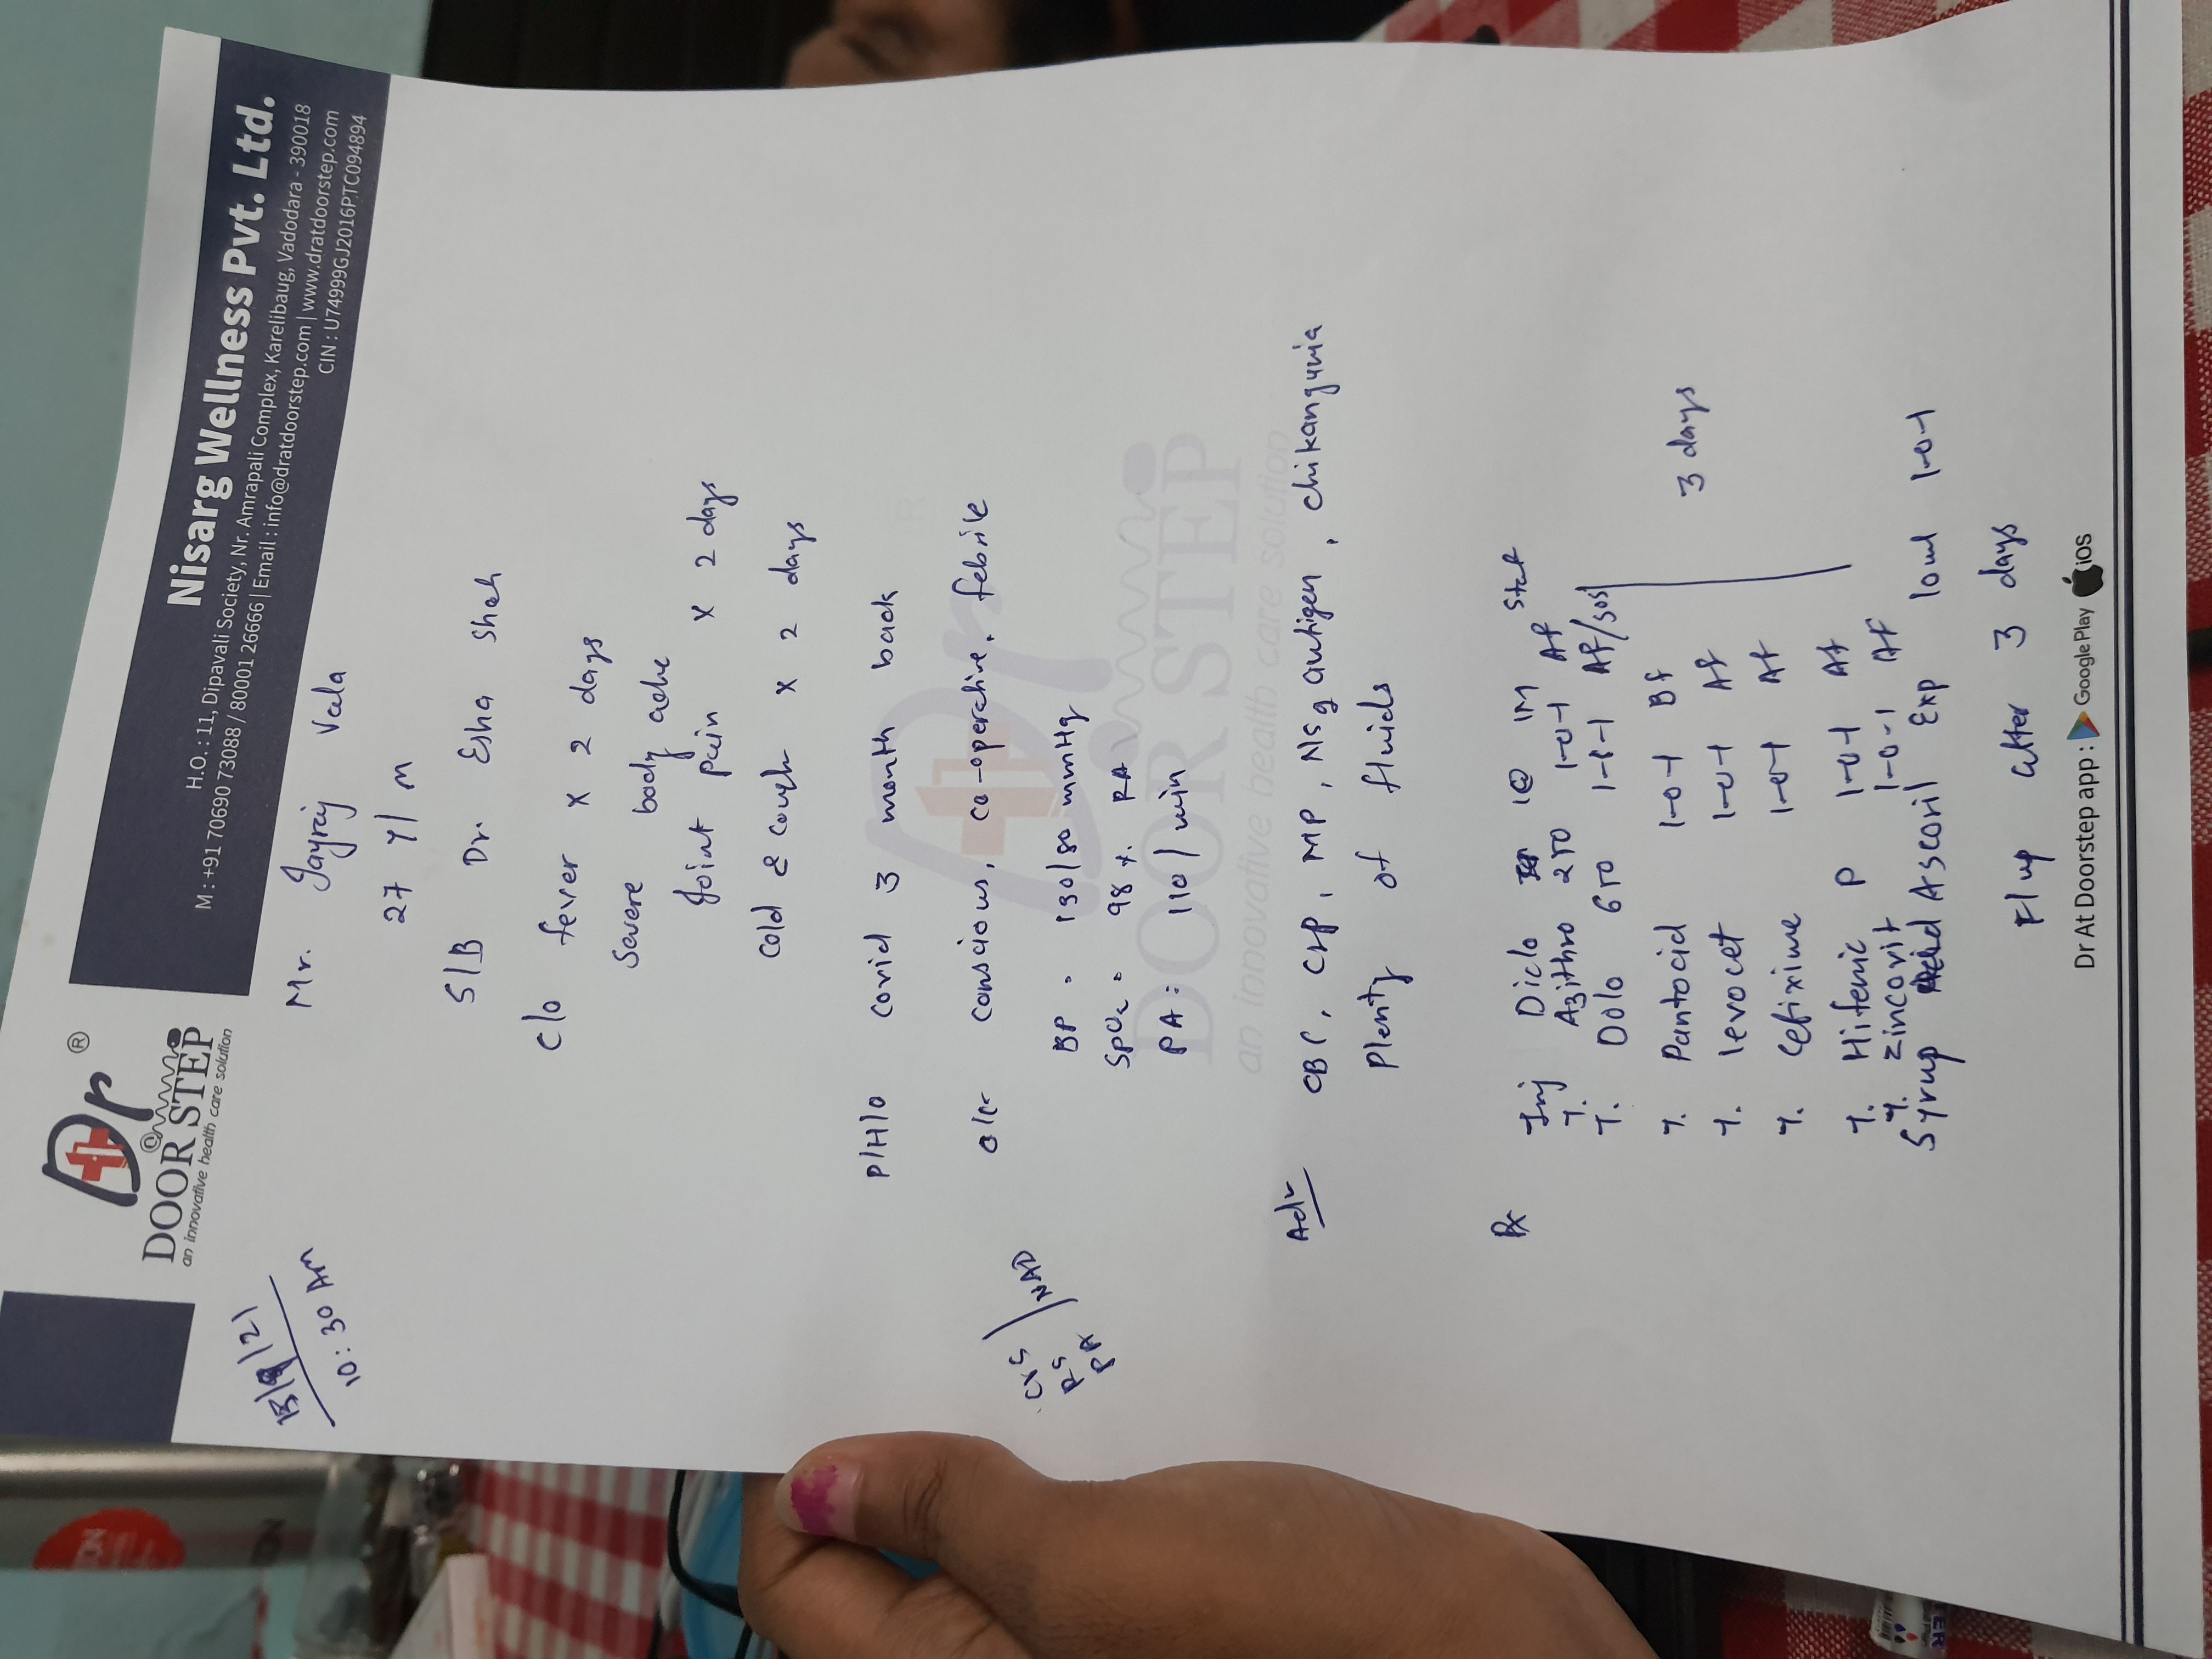 Dr ®
@
DOOR STEP
an innovative health care solution
Nisarg Wellness Pvt. Ltd.
H.O. : 11, Dipavali Society, Nr. Amrapali Complex, Karelibaug, Vadodara - 390018
M : +91 70690 73088 / 80001 26666 | Email : info@dratdoorstep.com | www.dratdoorstep.com
CIN : U74999GJ2016PTC094894
15/9/21
10:30 AM
Mr. Jayraj Vala
27 Y/M
S/B Dr. Esha Shah
C/o fever x 2 days
Severe body ache
Joint pain x 2 days
Cold & cough x 2 days
P/H/O Covid 3 month back
O/E conscious, co-operative, febrile
CVS
RS
PA
NAD
BP = 130/80 mmHg
SpO2 = 98 % RA
PA: 110 / min
Dr ®
DOOR STEP
an innovative health care solution
Adv CBC, CRP, MP, NS, antigen, chikangunia
Plenty of fluids
Rx
Inj Diclo 1@ IM Stat
T. Azithro 250 1-0-1 AF
T. Dolo 650 1-1-1 AF/SOS
T. Pantocid 1-0-1 BF
T. levocet 1-0-1 AF
T. Cefixime 1-0-1 AF
T. Hifenic P 1-0-1 AF
3 days
T. Zincovit 1-0-1 AF
Syrup Ascoril Exp 10ml 1-0-1
F/up after 3 days
Dr At Doorstep app : Google Play iOS